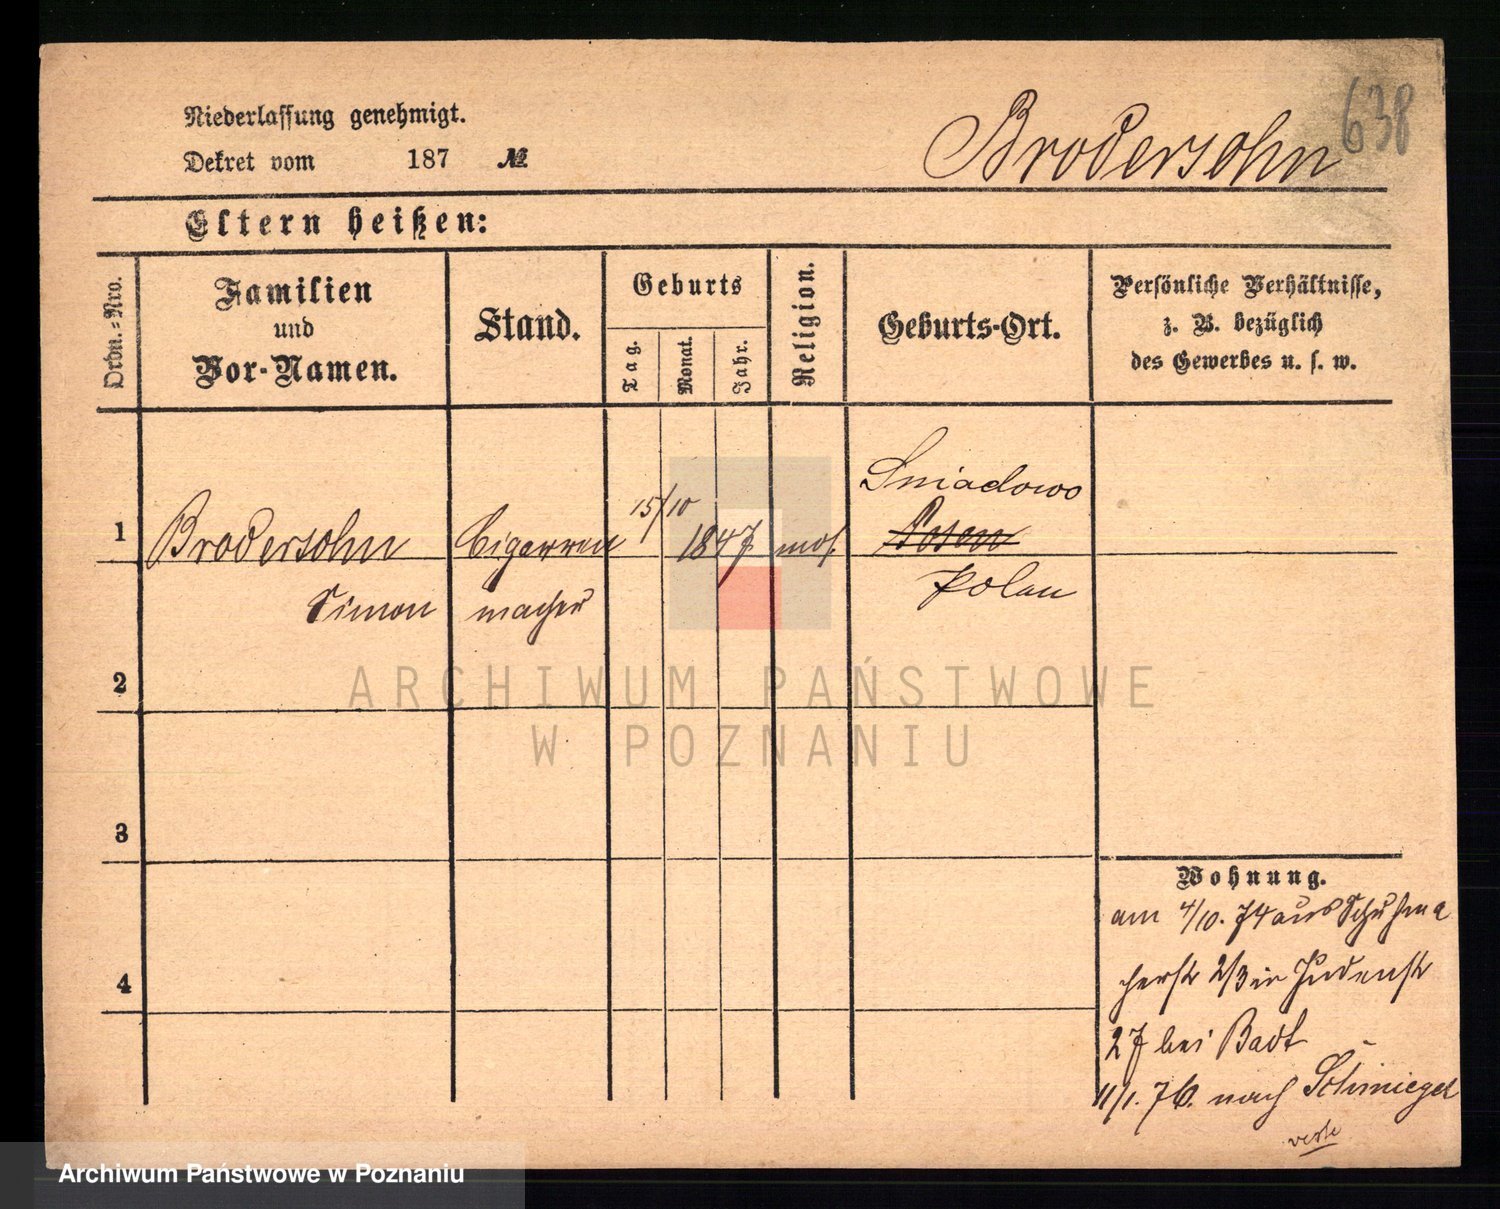 638
Niederlassung genehmigt.
Dekret vom 187 №
Brodersohn
Eltern heißen:
Ordn.-Nro.
Familien
und
Vor-Namen.
Stand.
Geburts
Tag.
Monat.
Jahr.
Religion.
Geburts-Ort.
Persönliche Verhältnisse,
z. B. bezüglich
des Gewerbes u. s. w.
1
Brodersohn
Simon
Cigarren
macher
15/10
1847
mos.
Sniadowo
Posen
Polen
2
3
4
Wohnung.
am 4/10. 74 aus Schuhma
cherstr 2/3 in Judenstr
27 bei Badt
11/1. 76. nach Schmiegel
ARCHIWUM PAŃSTWOWE
W POZNANIU
Archiwum Państwowe w Poznaniu